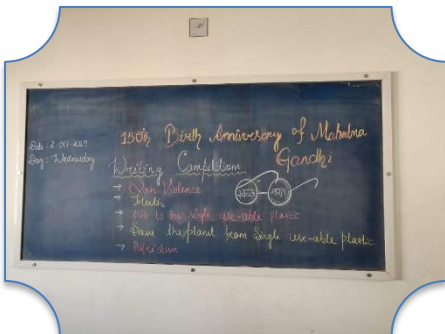 Date : 2-Oct-2019
Day : Wednesday
150th Birth Anniversary of Mahatma
Gandhi
Writing Competition
→ Non Violence
→ Truth
→ No to the single use-able plastic
→ Save the planet from Single use-able plastic
→ Patriotism
स्वच्छ भारत